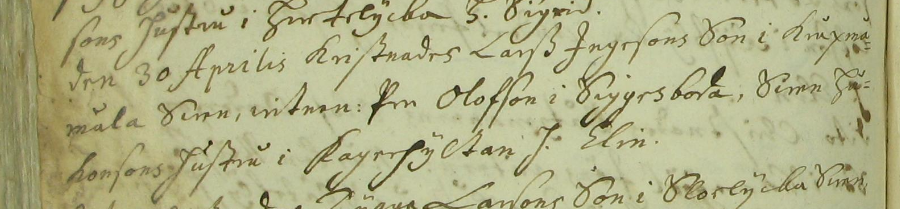 sons Hustru i Hiertelycka H. Sigrid.
den 30 Aprilis Kristnades Larß Ingesons Son i Kruxmå-
måla Swen, witnen: Per Olofson i Siggesboda, Swen Hå-
konsons Hustru i Kagerhyltan H. Elin.
Larsons Son i Slaelycka Swen,